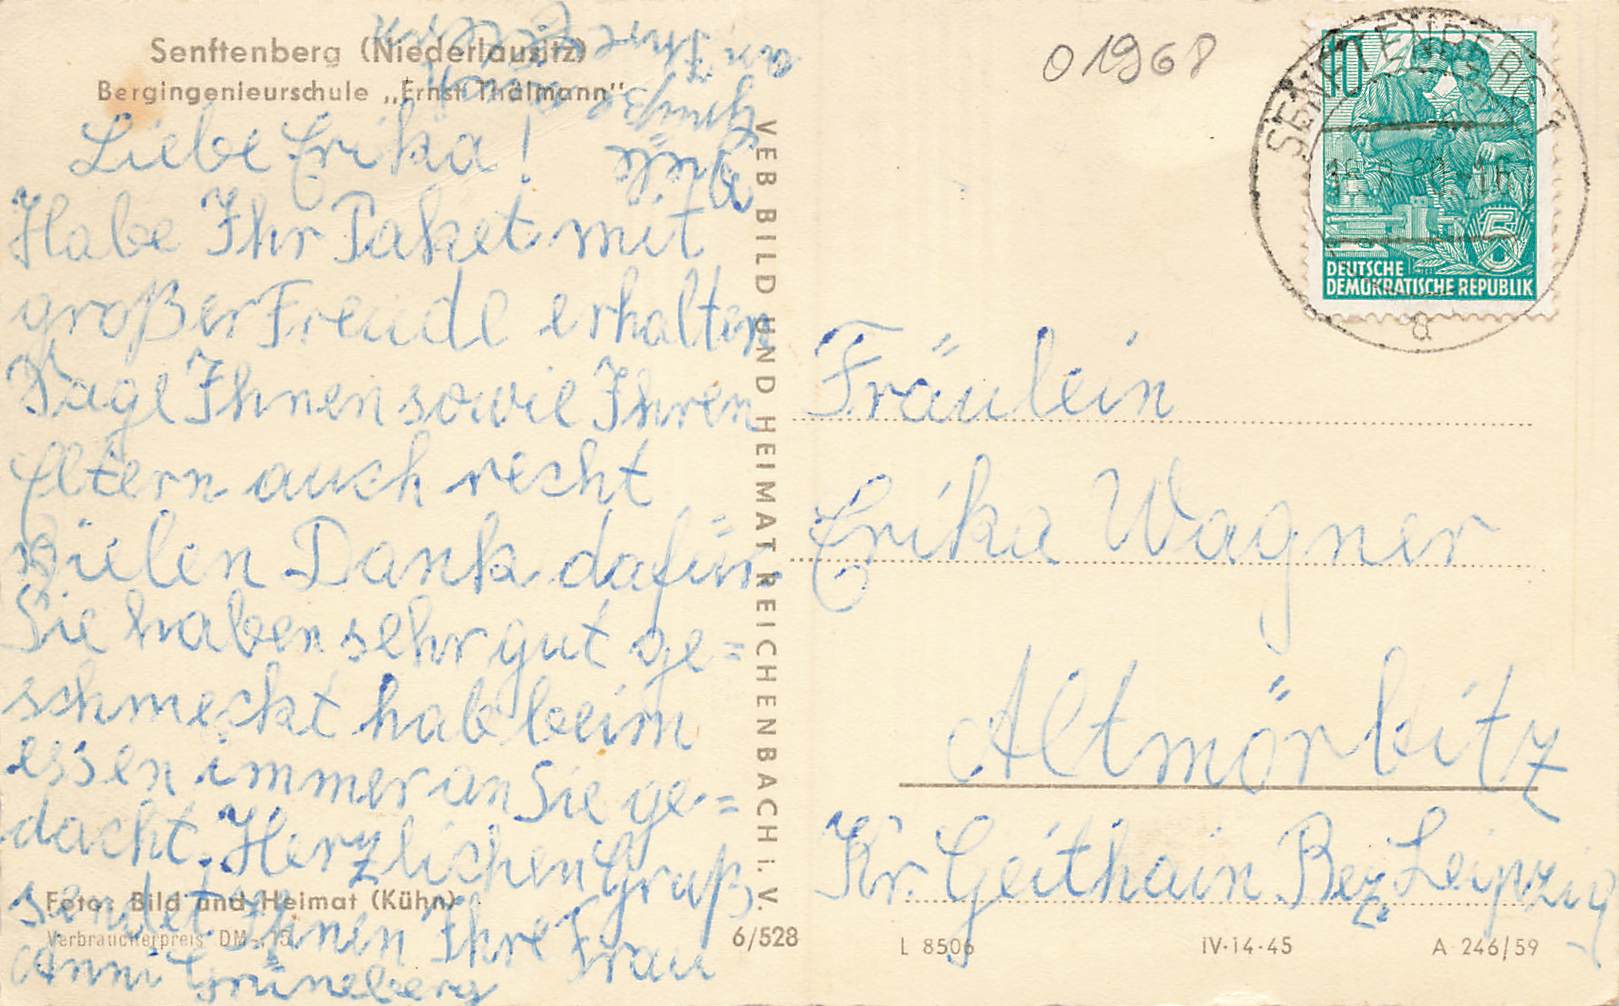 Senftenberg (Niederlausitz)
Bergingenieurschule „Ernst Thälmann“
Liebe Erika!
Habe Ihr Paket mit
großer Freude erhalten
Sage Ihnen sowie Ihren
Eltern auch recht
vielen Dank dafür
Sie haben sehr gut ge=
schmeckt hab beim
essen immer an Sie ge=
dacht. Herzlichen Gruß
sendet Ihnen Ihre Frau
Anni Grüneberg
an Ihre Eltern
Grüße
Foto: Bild und Heimat (Kühn)
Verbraucherpreis DM -,15
6/528
VEB BILD UND HEIMAT REICHENBACH i. V.
01968
SENFTENBERG
10
5
DEUTSCHE
DEMOKRATISCHE REPUBLIK
a
Fräulein
Erika Wagner
Altmörbitz
Kr. Geithain Bez. Leipzig
L 8506
IV-14-45
A 246/59